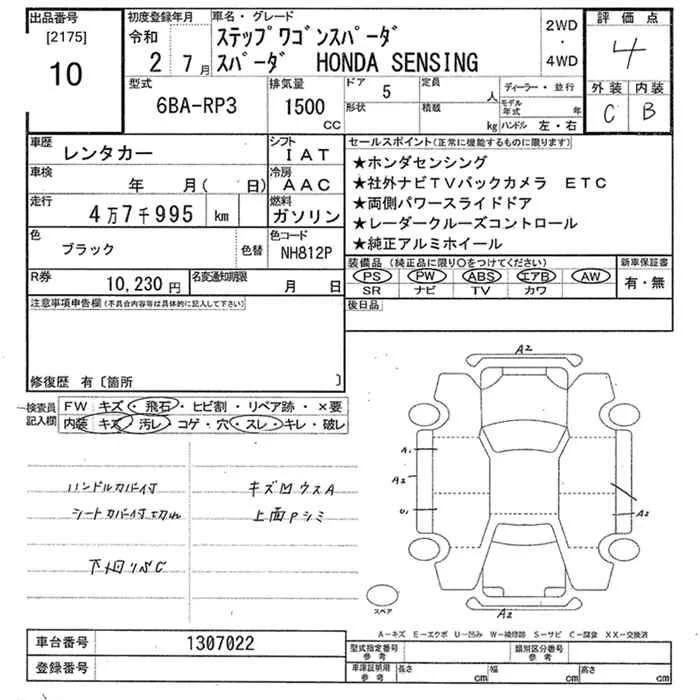 出品番号 初度登録年月 車名・グレード 評価点
[2175] 令和 ステップワゴンスパーダ 2WD ・ 4WD 4
10 2 7月 スパーダ HONDA SENSING
型式 排気量 ドア 5 定員 人 ディーラー・並行 外装 内装
6BA-RP3 1500 CC 形状 積載 kg モデル年式 年 ハンドル 左・右 C B
車歴 レンタカー シフト IAT セールスポイント(正常に機能するものに限ります)
車検 年 月( 日) 冷房 AAC ★ホンダセンシング
走行 4万7千995 km 燃料 ガソリン ★社外ナビTVバックカメラ ETC
★両側パワースライドドア
色 ブラック 色替 色コード NH812P ★レーダークルーズコントロール
★純正アルミホイール
R券 10,230円 名変通知期限 月 日 装備品(純正品に限り○をつけてください) 新車保証書
PS PW ABS エアB AW 有・無
SR ナビ TV カワ
注意事項申告欄(不具合内容等は具体的に記入して下さい) 後日品
修復歴 有〔箇所 〕
検査員記入欄 FW キズ・飛石・ヒビ割・リペア跡・×要
内装 キズ 汚レ・コゲ・穴・スレ・キレ・破レ
ハンドルカバー付 キズ凹ウスA
シートカバー付切れ 上面Pシミ
下回りSC
A2
A1
A2
U1 A2
A2
スペア
A-キズ E-エクボ U-凹み W-補修跡 S-サビ C-腐食 XX-交換済
車台番号 1307022 型式指定番号 参考 類別区分番号 参考
登録番号 車庫証明用 参考 長さ cm 幅 cm 高さ cm